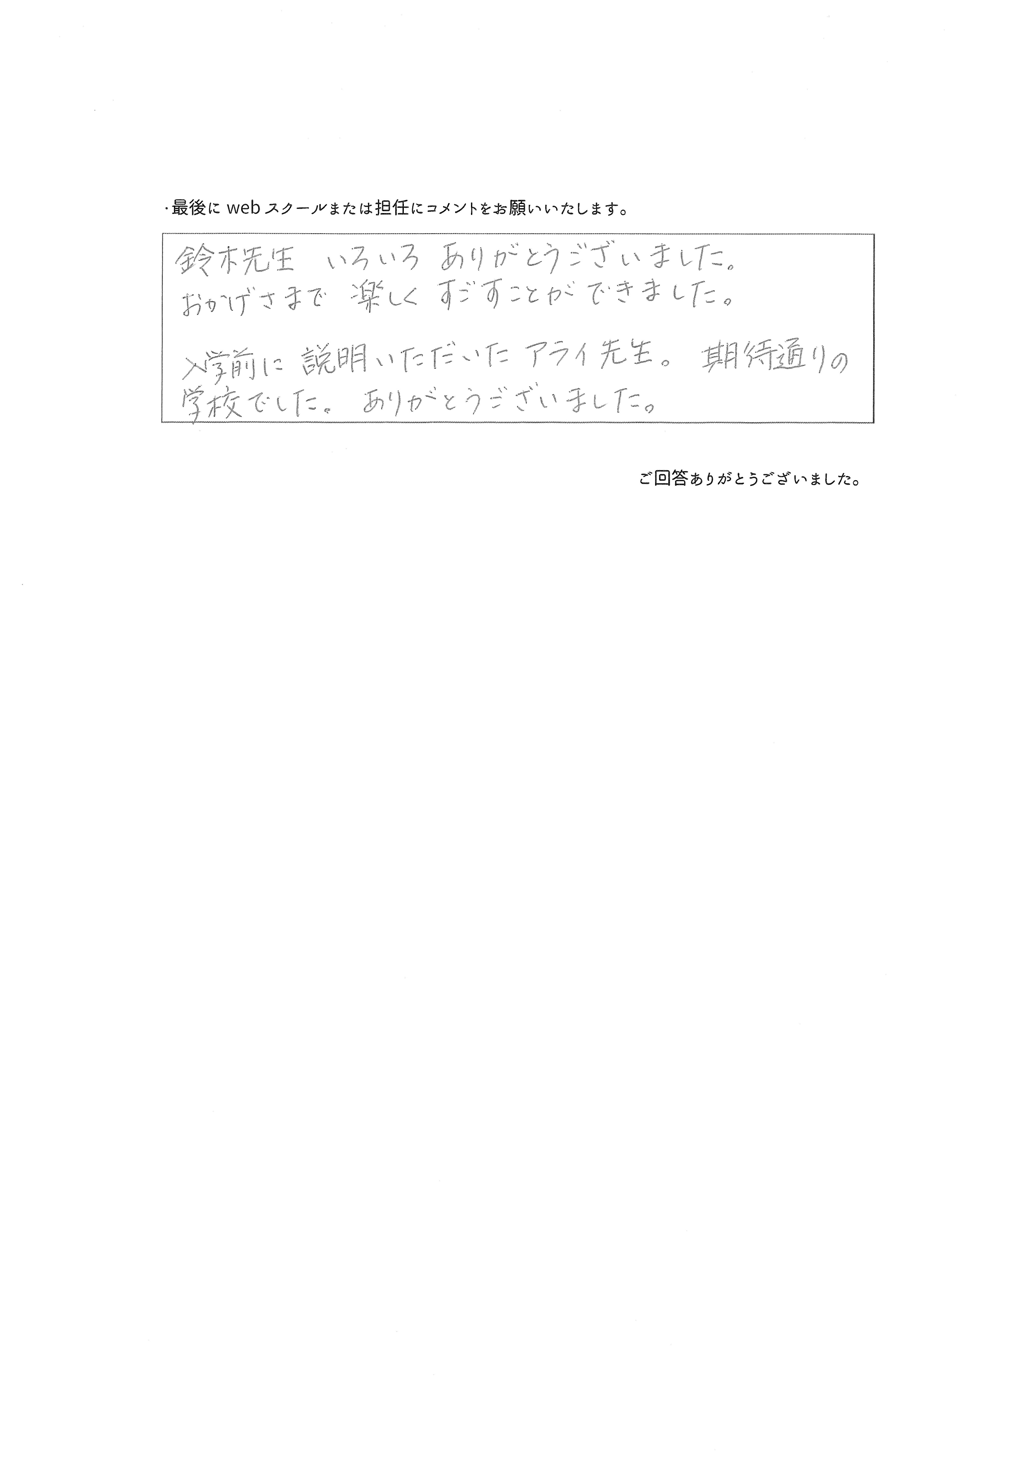 ・最後に web スクールまたは担任にコメントをお願いいたします。
鈴木先生 いろいろ ありがとうございました。
おかげさまで 楽しく すごすことが できました。
入学前に 説明いただいた アライ先生。 期待通りの
学校でした。 ありがとうございました。
ご回答ありがとうございました。